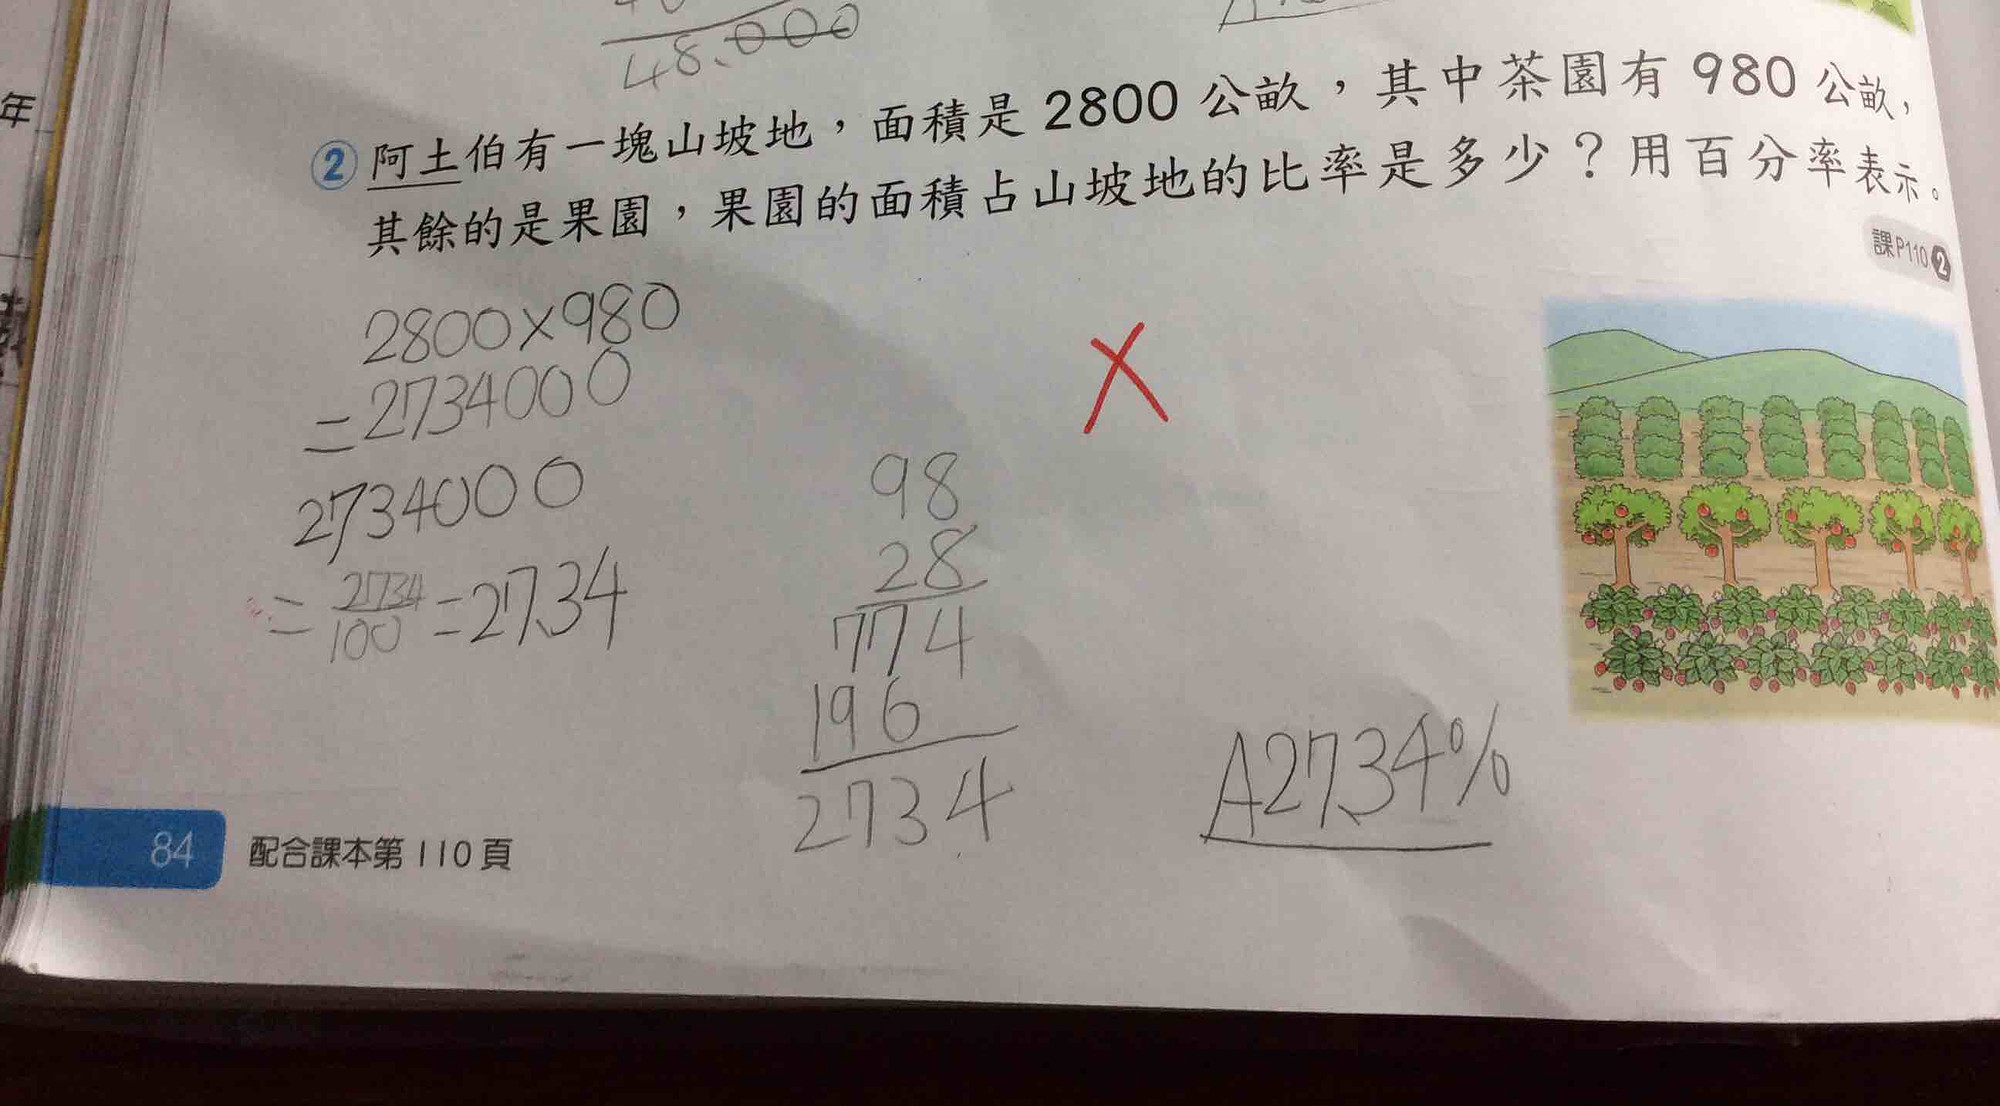 48.000
年
② 阿土伯有一塊山坡地，面積是 2800 公畝，其中茶園有 980 公畝，
其餘的是果園，果園的面積占山坡地的比率是多少？用百分率表示。
課P110 ❷
2800×980
=2734000
2734000
=2734/100=27.34
98
28
774
196
2734
A27.34%
84 配合課本第 110 頁